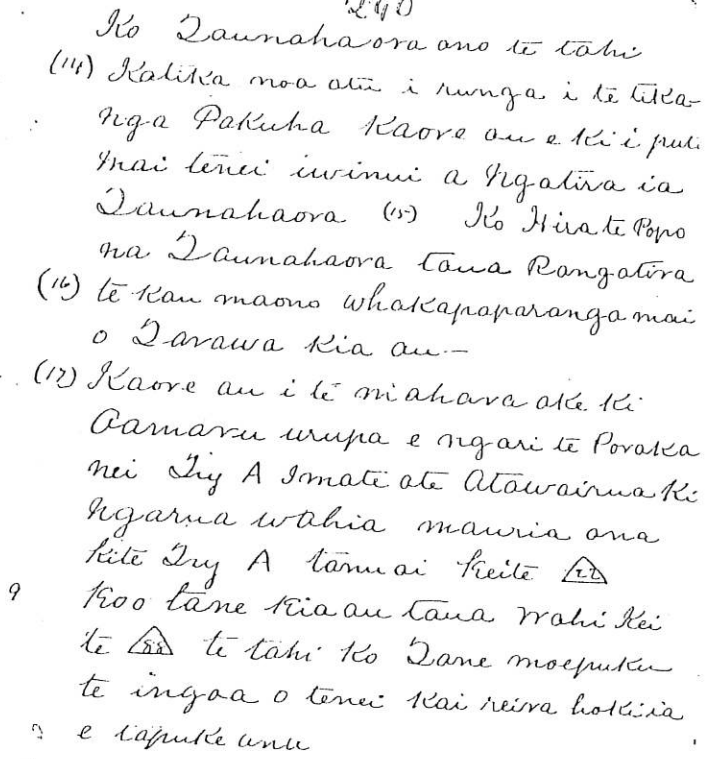 240
Ko Taunahaora ano te tahi
(14) Katika noa atu i runga i te tika-
nga Pakuha Kaore au e ki i puta
mai tenei iwinui a Ngatira ia
Taunahaora (15) Ko Hira te Popo
na Taunahaora taua Rangatira
(16) te kau maono whakapaparanga mai
o Tarawa kia au—
(17) Kaore au i te mahara ake ki
Aamaru urupa e ngari te Poraka
nei Try A Imate ate Atawairua ki
Ngarua wahia mauria ana
kite Try A tanu ai keite 22
9 Koo tane kia au taua wahi kei
te 88 te tahi ko Tane moepuku
te ingoa o tenei kai reira hokiia
e tapuke unu